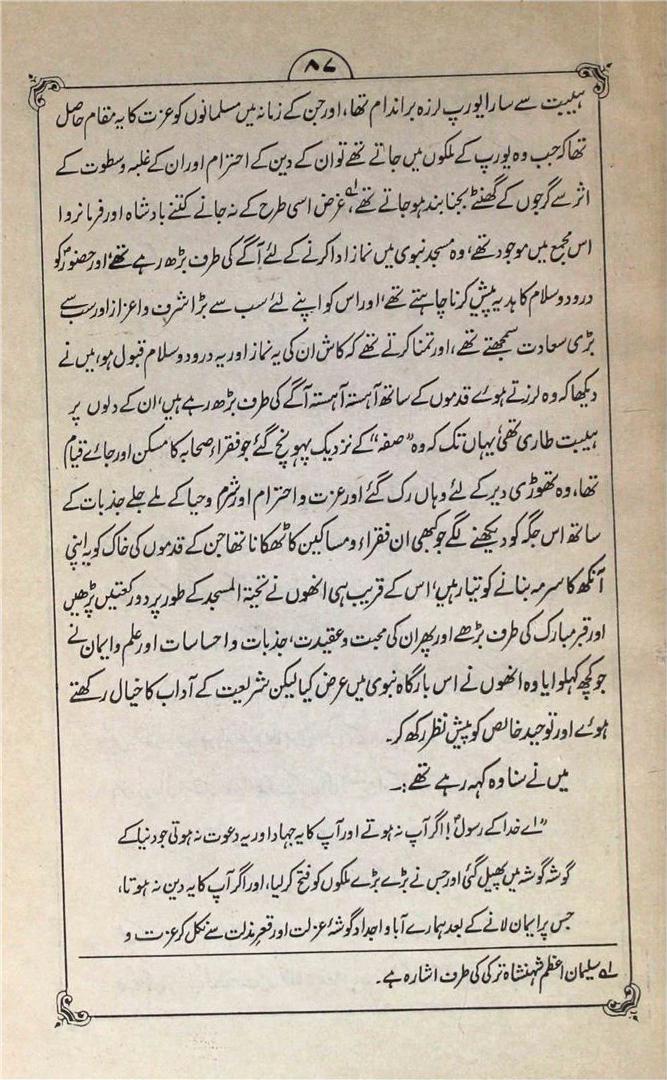 ۸۷
ہیبت سے سارا یورپ لرزہ براندام تھا، اور جن کے زمانہ میں مسلمانوں کو عزت کا یہ مقام حاصل
تھا کہ جب وہ یورپ کے ملکوں میں جاتے تھے تو ان کے دین کے احترام اور ان کے غلبہ و سطوت کے
اثر سے گرجوں کے گھنٹے بجنا بند ہو جاتے تھے،لہ غرض اسی طرح کے نہ جانے کتنے بادشاہ اور فرمانروا
اس مجمع میں موجود تھے، وہ مسجد نبوی میں نماز ادا کرنے کے لئے آگے کی طرف بڑھ رہے تھے، اور حضورؐ کو
درود و سلام کا ہدیہ پیش کرنا چاہتے تھے، اور اس کو اپنے لئے سب سے بڑا شرف و اعزاز اور سب سے
بڑی سعادت سمجھتے تھے، اور تمنا کرتے تھے کہ کاش ان کی یہ نماز اور یہ درود و سلام قبول ہو، میں نے
دیکھا کہ وہ لرزتے ہوئے قدموں کے ساتھ آہستہ آہستہ آگے کی طرف بڑھ رہے ہیں، ان کے دلوں پر
ہیبت طاری تھی، یہاں تک کہ وہ "صفہ" کے نزدیک پہونچ گئے جو فقراء صحابہ کا مسکن اور جائے قیام
تھا، وہ تھوڑی دیر کے لئے وہاں رک گئے اور عزت و احترام اور شرم و حیا کے ملے جلے جذبات کے
ساتھ اس جگہ کو دیکھنے لگے جو کبھی ان فقراء و مساکین کا ٹھکانا تھا جن کے قدموں کی خاک کو یہ اپنی
آنکھ کا سرمہ بنانے کو تیار ہیں، اس کے قریب ہی انھوں نے تحیۃ المسجد کے طور پر دو رکعتیں پڑھیں
اور قبر مبارک کی طرف بڑھے اور پھر ان کی محبت و عقیدت، جذبات و احساسات اور علم و ایمان نے
جو کچھ کہلوایا وہ انھوں نے اس بارگاہ نبوی میں عرض کیا لیکن شریعت کے آداب کا خیال رکھتے
ہوئے اور توحید خالص کو پیش نظر رکھ کر۔
میں نے سنا وہ کہہ رہے تھے:۔
"اے خدا کے رسولؐ! اگر آپ نہ ہوتے اور آپ کا یہ جہاد اور یہ دعوت نہ ہوتی جو دنیا کے
گوشہ گوشہ میں پھیل گئی اور جس نے بڑے بڑے ملکوں کو فتح کر لیا، اور اگر آپ کا یہ دین نہ ہوتا،
جس پر ایمان لانے کے بعد ہمارے آبا و اجداد گوشۂ عزلت اور قعر مذلت سے نکل کر عزت و
لہ سلیمان اعظم شہنشاہ ترکی کی طرف اشارہ ہے۔